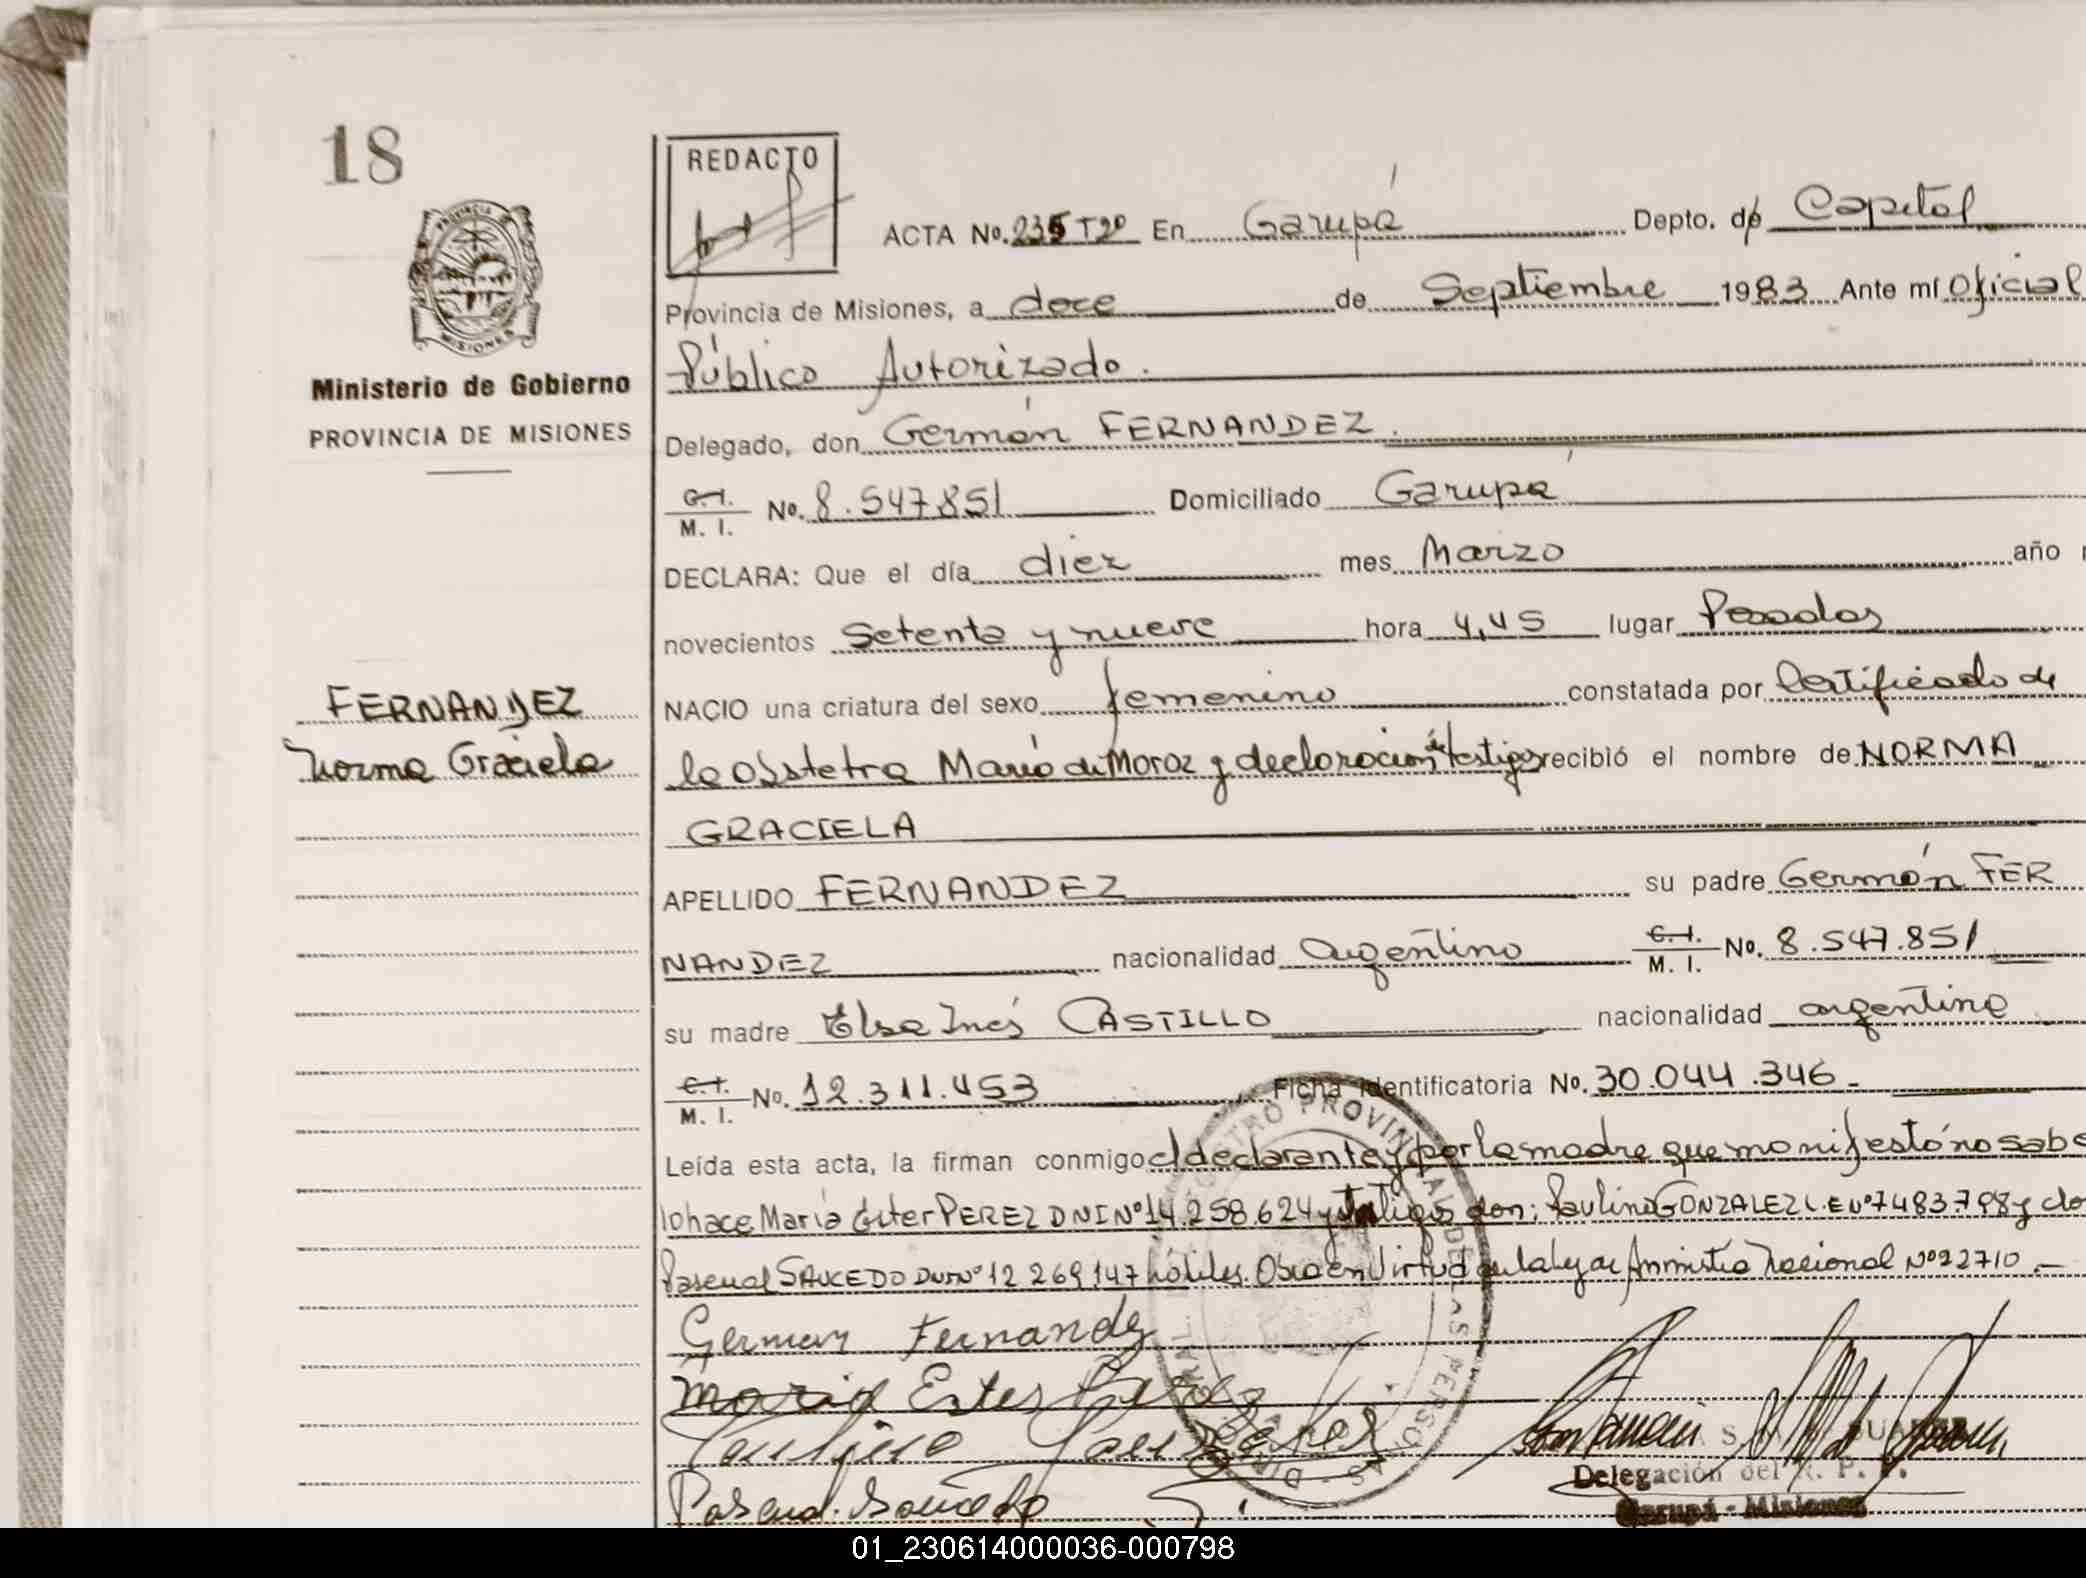 18
REDACTO
ACTA No. 235 Tº2º En Garupá Depto. de Capital
PROVINCIA DE MISIONES
Provincia de Misiones, a doce de Septiembre 1983 Ante mí Oficial
Público Autorizado.
Ministerio de Gobierno
PROVINCIA DE MISIONES
Delegado, don Germán FERNANDEZ.
C. I.
M. I. No. 8.547.851 Domiciliado Garupá
DECLARA: Que el día diez mes Marzo año
novecientos Setenta y nueve hora 4,45 lugar Posadas
FERNANDEZ
Norma Graciela
NACIO una criatura del sexo femenino constatada por Certificado de
la Obstetra María de Moroz y declaración de testigos recibió el nombre de NORMA
GRACIELA
APELLIDO FERNANDEZ su padre Germán FER
NANDEZ nacionalidad argentino C. I. M. I. No. 8.547.851
su madre Elsa Inés CASTILLO nacionalidad argentina
C. I.
M. I. No. 12.311.453 Ficha Identificatoria No. 30.044.346.-
Leída esta acta, la firman conmigo el declarante y por la madre que manifestó no sabe
lo hace María Ester PEREZ DNI Nº 14.258.624 y testigos don: Paulino GONZALEZ L.E Nº 7483.798 y do
Pascual SAUCEDO DNI Nº 12 269.147 hábiles. Obra en Virtud de la ley de Amnistia Nacional Nº 22710.-
German Fernandez
Maria Ester Perez
Paulino Gonzalez
Pascual Saucedo
REGISTRO PROVINCIAL DE LAS PERSONAS
Delegación del R. P. P.
Garupá - Misiones
01_230614000036-000798